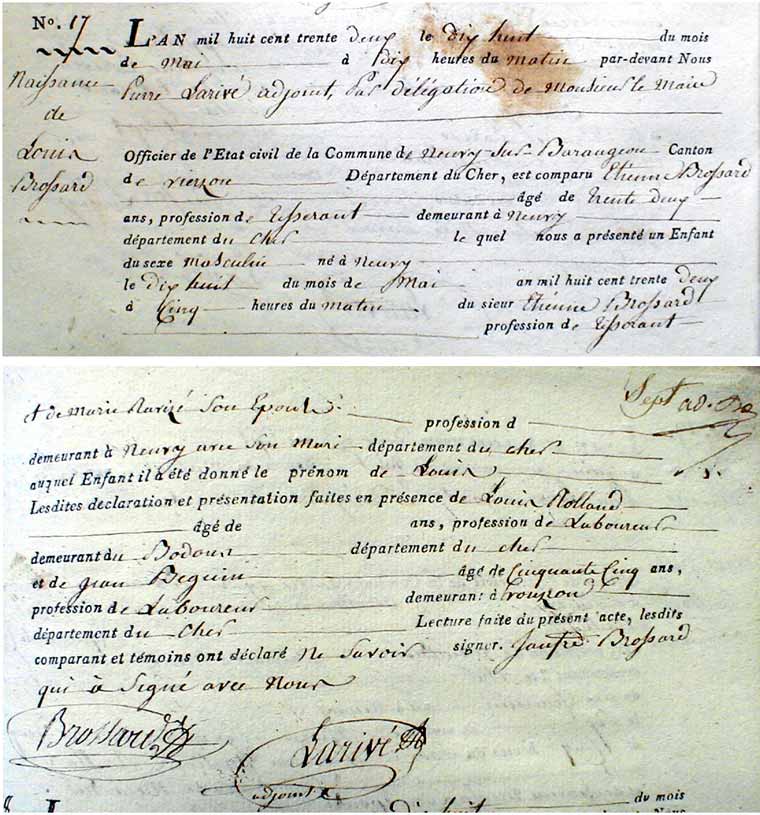 N.º 17
Naissance
de
Louis
Brossard
L'AN mil huit cent trente deux le dix huit du mois
de Mai à dix heures du matin par-devant Nous
Pierre Larivé adjoint, Par délégation de Monsieur le Maire
Officier de l'Etat civil de la Commune de Neuvy-Sur-Barangeon Canton
de vierzon Département du Cher, est comparu Etienne Brossard
âgé de trente deux
ans, profession de tisserant demeurant à Neuvy
département du Cher le quel nous a présenté un Enfant
du sexe masculin né à Neuvy
le dix huit du mois de Mai an mil huit cent trente deux
à Cinq heures du matin du sieur Etienne Brossard
profession de tisserant
Sept
et de Marie Son Epouse profession d
demeurant à Neuvy avec son Mari département du cher
auquel Enfant il a été donné le prénom de Louis
Lesdites déclaration et présentation faites en présence de Louis Rolland
âgé de ans, profession de Laboureur
demeurant du département du cher
et de jean Beguin âgé de Cinquante Cinq ans,
profession de Laboureur demeurant à vouzon
département du Cher Lecture faite du présent acte, lesdits
comparant et témoins ont déclaré ne Savoir signer. Brossard
qui à Signé avec Nous
Brossard
Larivé
adjoint
8 L dix huit du mois